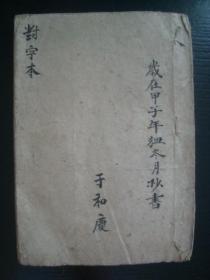 歲在甲子年冬月抄書
于和慶
對字本